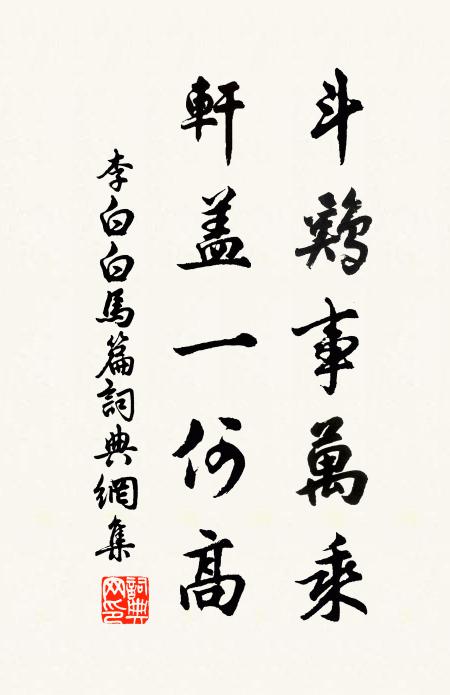 斗鷄事萬乘
軒盖一何高
李白白馬篇詞典網集
詞典网印